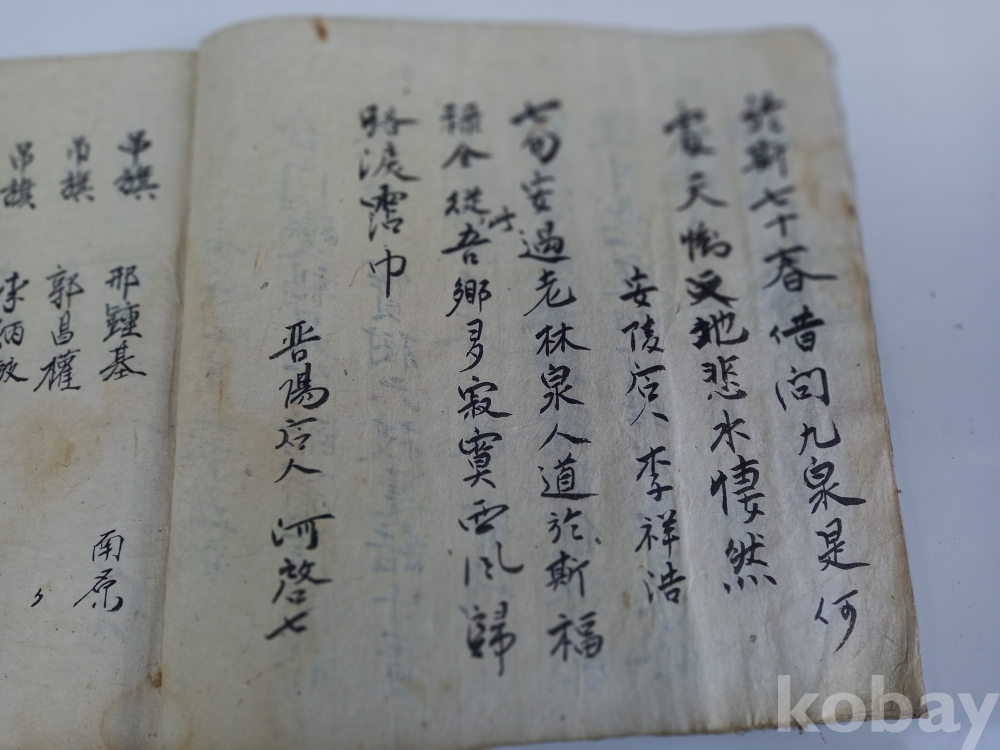 於斯七十春借問九泉是何
處天慟又地悲水悽然
安陵后人 李祥浩
七旬安過老林泉人道於斯福
祿全從吾鄉多寂寞西風歸
路淚霑巾
晋陽后人 河啓七
吊旗 邢鍾基 南原
吊旗 郭昌權 〃
吊旗 李炳
kobay